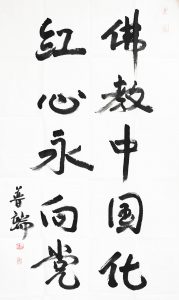 佛教中国化
红心永向党
善端